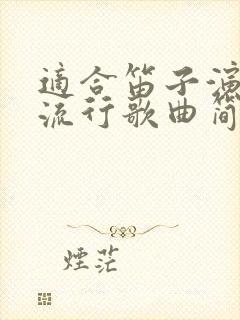 適合笛子演
流行歌曲简
煙茫